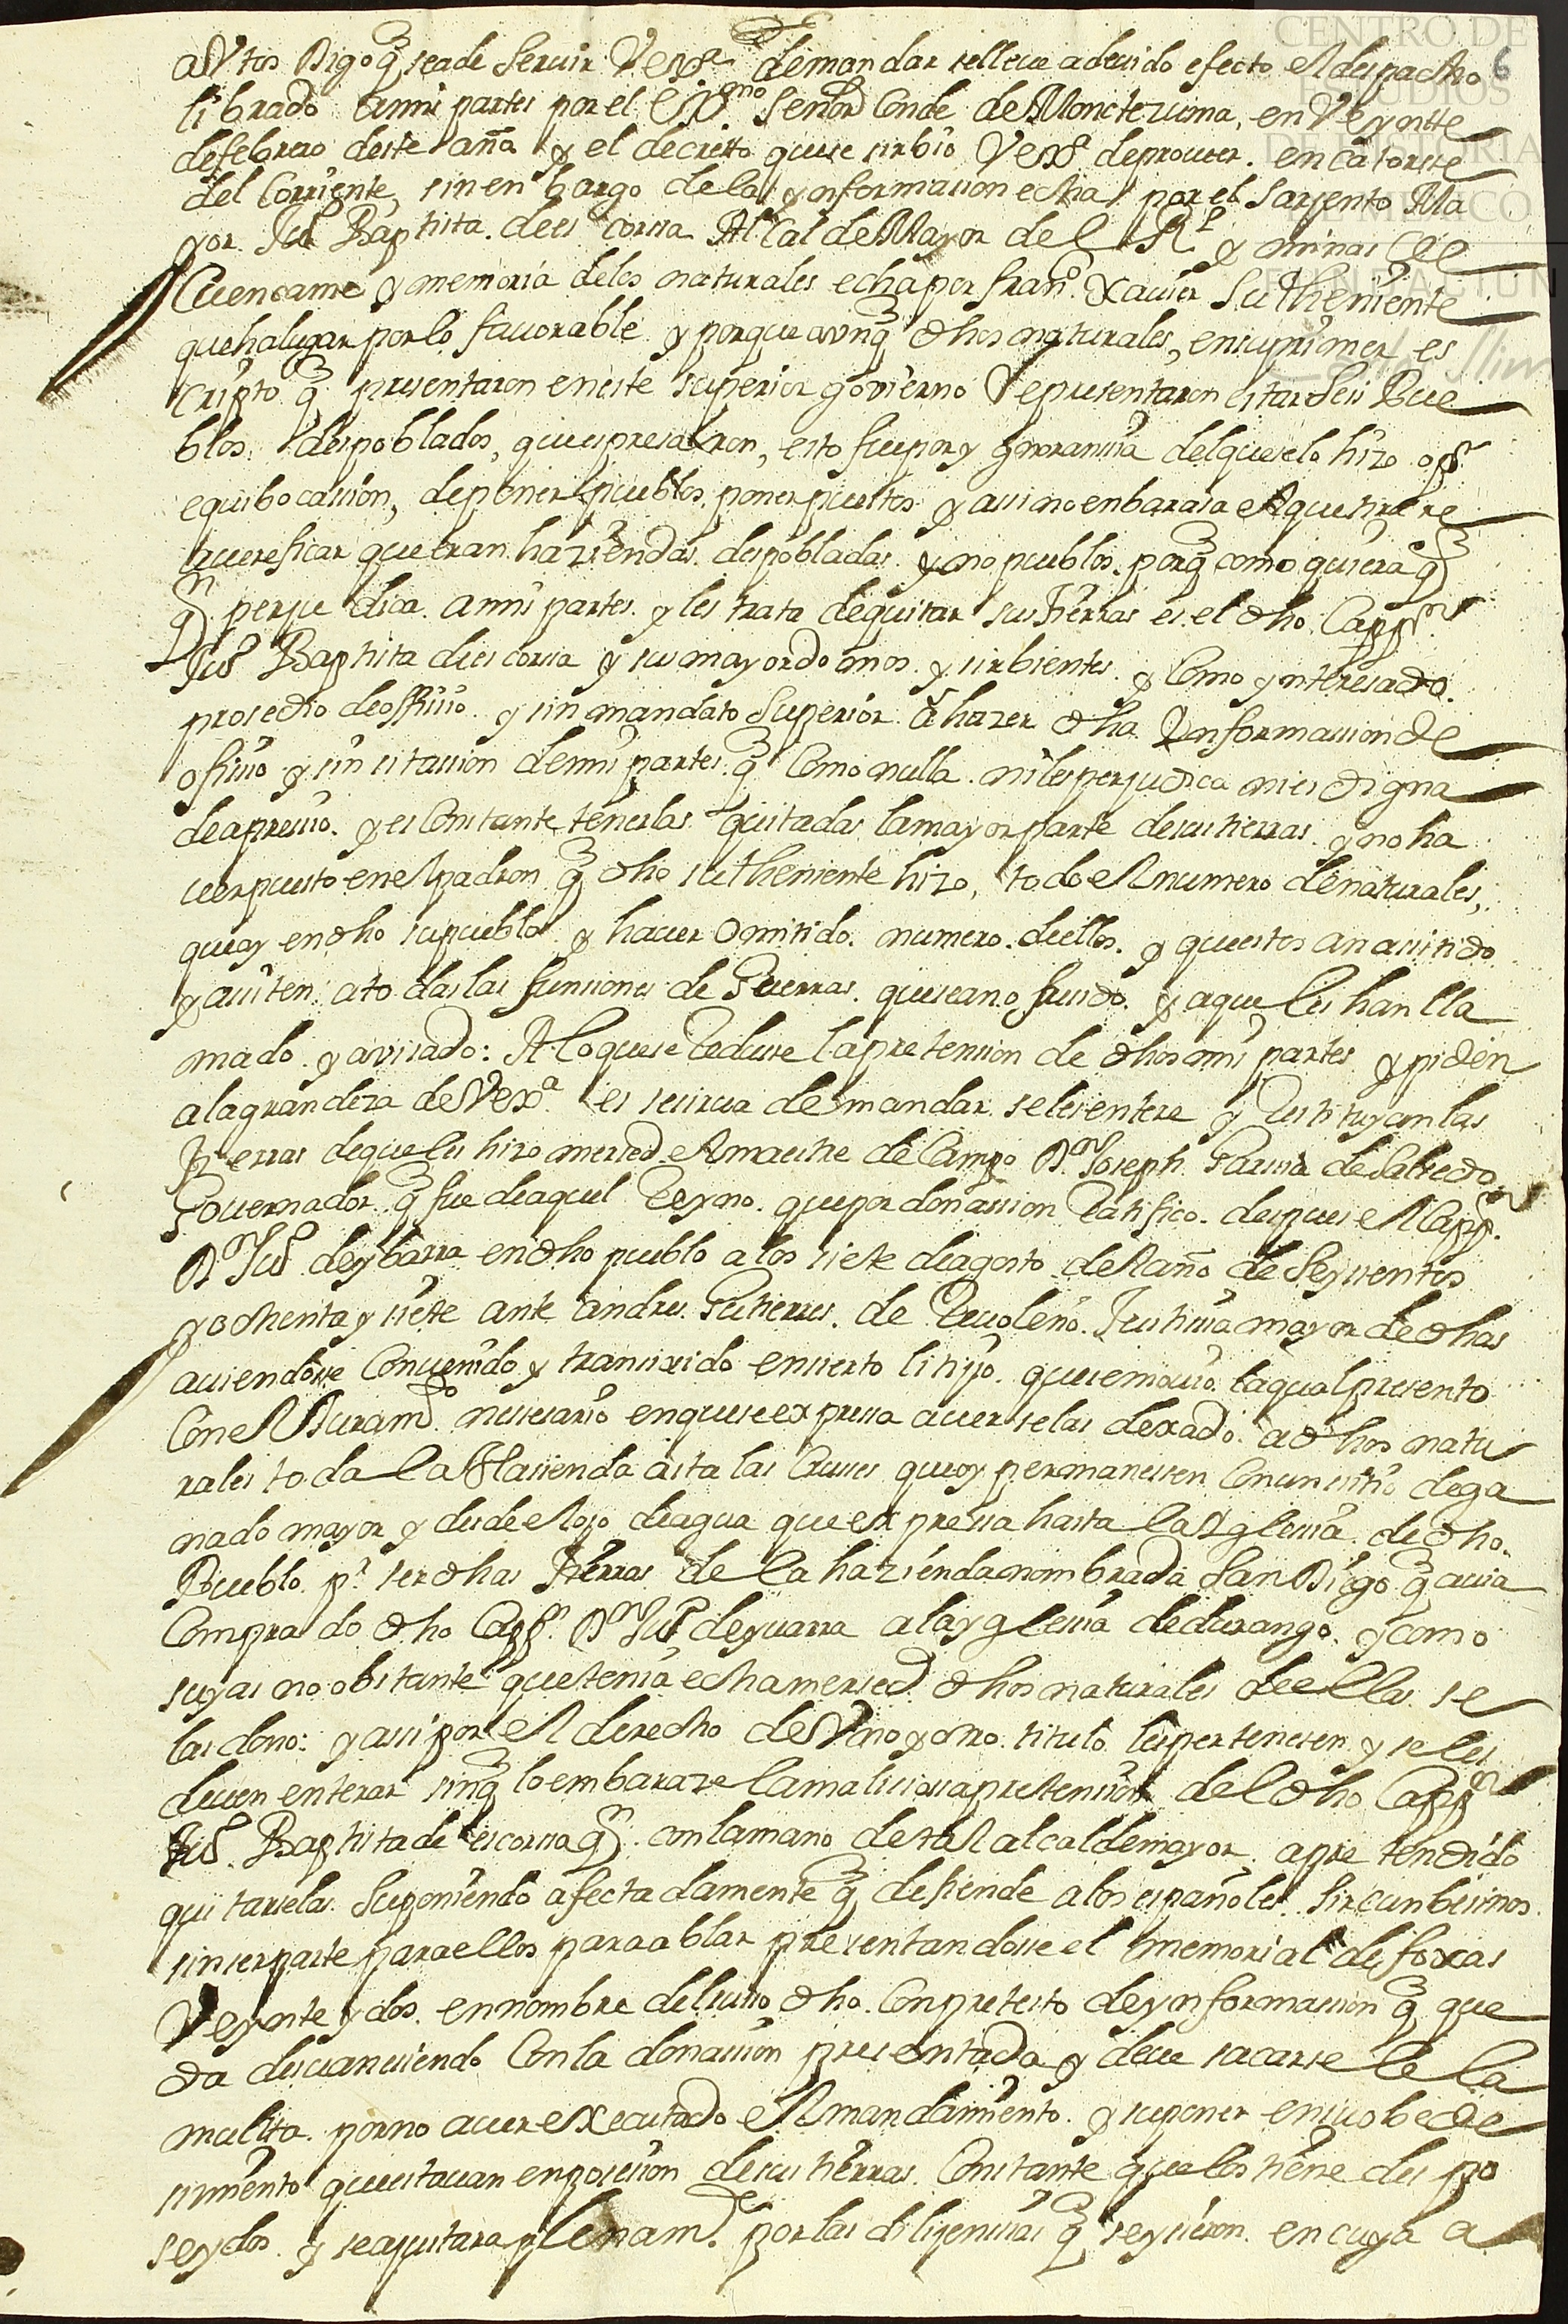 CENTRO DE
ESTUDIOS
DE HISTORIA
DE MEXICO
FUNDACIÓN
Carlos Slim
6
autos Digo q̃ seade seruir Vexª demandar selleue adeuido efecto el despacho
librado amis partes por el Exmo Señor Conde de Moncteruma, en Veyntte
defebrero deste año y el decretto quese sirbio Vexª deproueer. en Catorsse
del Corriente, sin enbargo dela ynformassion echa por el Sarjento Ma
yor Juº Baptista. dees corsia Alcalde Mayor de el Rl y minas de
Cuencame y memoria delos naturales echa por franº Xauier su theniente
que halugar porlo fauorable y porque aunq̃ dhos naturales, ensuprimer es
cripto q̃ presentaron eneste superior govierno Representaron estar seis Pue
blos despoblados, que espresaron, esto fue por ygnoransia delquese lo hizo o pr
equibocassion, deponer pueblos, poner puestos y assi no enbarasa el quese
auereficar que eran haziendas despobladas y no pueblos. porq̃ como quiera q̃
qn perjudica amis partes y les trata dequitar sus tierras es el dho Cappn
Juº Baptista dees corsia y sus mayordomos y sirbientes y Como ynteresado
prosedio deoffisio y sin mandato Superior â hazer dha Ynformassion de
ofisio y sin sitassion demis partes q̃ Como nulla niles perjudica nies digna
deapresio. y es Constante tenerlas quitadas lamayor parte desus tierras y no ha
uer puesto en el padron q̃ dho su theniente hizo, todo el numero denaturales,
que ay en dho su pueblo y hauer Omitido numero deellos y que estos an asistido
y assisten ato das las funsiones de Guerras que sean ofresido y aque les han lla
mado y auisado: Alo quese Reduse la pretension de dhos mis partes y piden
ala grandeza de Vexª es sesirua demandar seles entere y Restituyan las
Tierras deque les hizo mersed el maestre de Campo Dn Joseph Garsia de Salsedo
Gouernador q̃ fue deaquel Reyno. que por donassion Ratifico. despues el Cappn
Dn Juº deybarra en dho pueblo a los siete deagosto del año de Seyssentos
y ochenta y siete ante andres Gutierres de Justisia mayor de dhas
auiendose Conuenido y transixido ensierto litijio quesemouio. laqual presento
Con el Juramdo nessesario en quese expressa auerselas dexado a dhos natu
rales to da la Hassienda asta las Cruses que oy permanessen Con un sitio dega
nado mayor y desde el ojo deagua que expressa hasta la Yglesia de dho
Pueblo pr ser dhas Tierras de la hazienda nombrada San Diego q̃ auia
Comprado dho Cappn Dn Juº deyuarra ala yglesia dedurango. y como
suyas no obstante que tenia echa mersed dhos naturales de ellas se
las dono: y assi por el derecho de Vno y otro titulo les pertenesen y seles
deuen enterar sin q̃ lo embaraze la malisiosa pretension del dho Cappn
Juº Baptista de escorsia qn con lamano de tal alcalde mayor a pre tendido
quitarselas suponiendo afectadamente q̃ defiende alos españoles Sircunbesinos
sin ser parte para ellos para ablar presentandose el memorial de foxas
Veynte y dos en nombre delsusso dho Con pretesto de ynformassion q̃ que
da desuanesiendo Con la donassion presentada y deue sacarsele la
multa por no auer executado el Mandamiento y suponer en su obede
simiento que estauan en posesion desus tierras Constante que los tiene des po
seydos y se ajustara plenamte por las dilijensias q̃ seysieron. en cuya a